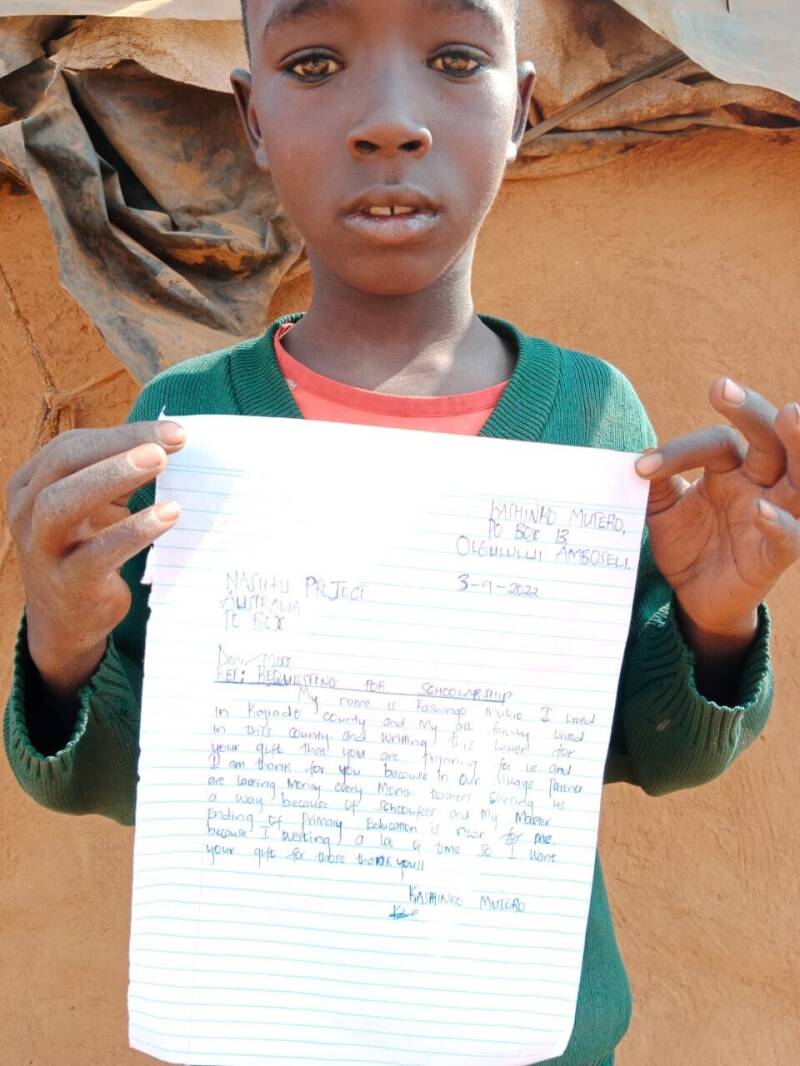 KASHINKO MUTERO,
PO BOX 13
OLGULULUI AMBOSELI.
3-9-2022
PROJECT
AUSTRALIA
PO BOX
REF: REQUESTING FOR SCHOOLARSHIP
My name is Kashingo Mutero I Lived
in Kajiado county and My all family Lived
in this county and writting this letter for
your gift that you are for us and
I am thank for you because in our village Parent
are lacking Money every Month teachers us
a way because of schoolfees and My Master
Ending of Primary Education is near for me
because I westing a lot of time so I want
your gift for those thank you!!
KASHINKO MUTERO